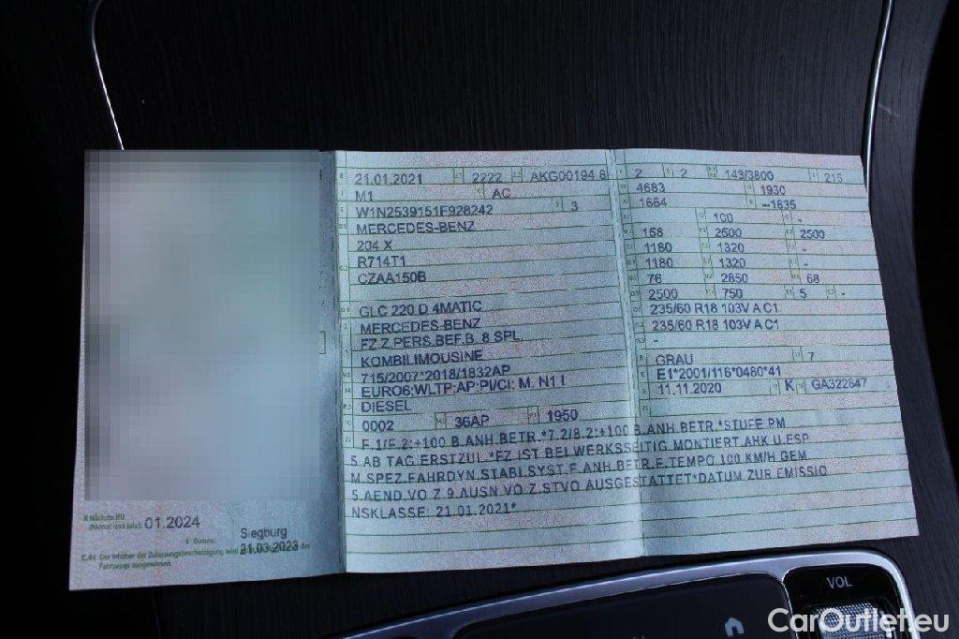 X Nächste HU
(Monat und Jahr) 01.2024
I Datum: Siegburg
21.03.2023
C.4c Der Inhaber der Zulassungsbescheinigung wird nicht als Eigentümer des
Fahrzeugs ausgewiesen.
21.01.2021 2222 AKG00194 8
M1 AC
W1N2539151F928242 3
MERCEDES-BENZ
204 X
R714T1
CZAA150B
GLC 220 D 4MATIC
MERCEDES-BENZ
FZ.Z.PERS.BEF.B. 8 SPL.
KOMBILIMOUSINE
715/2007*2018/1832AP
EURO6;WLTP;AP;PI/CI: M, N1 I
DIESEL
0002 36AP 1950
2 2 143/3800 215
4683 1930
1664 --1835
100 -
158 2500 2500
1180 1320 -
1180 1320 -
76 2850 68
2500 750 5 -
235/60 R18 103V A C1
235/60 R18 103V A C1
-
GRAU 7
E1*2001/116*0480*41
11.11.2020 K GA322847
F.1/F.2:+100 B.ANH.BETR.*7.2/8.2:+100 B.ANH.BETR.*STUFE PM
5 AB TAG ERSTZUL.*FZ IST BEI.WERKSSEITIG MONTIERT.AHK U.ESP
M.SPEZ.FAHRDYN.STABI.SYST.F.ANH.BETR.F.TEMPO 100 KM/H GEM
5.AEND.VO Z.9.AUSN.VO.Z.STVO AUSGESTATTET*DATUM ZUR EMISSIO
NSKLASSE: 21.01.2021*
VOL
CarOutlet.eu